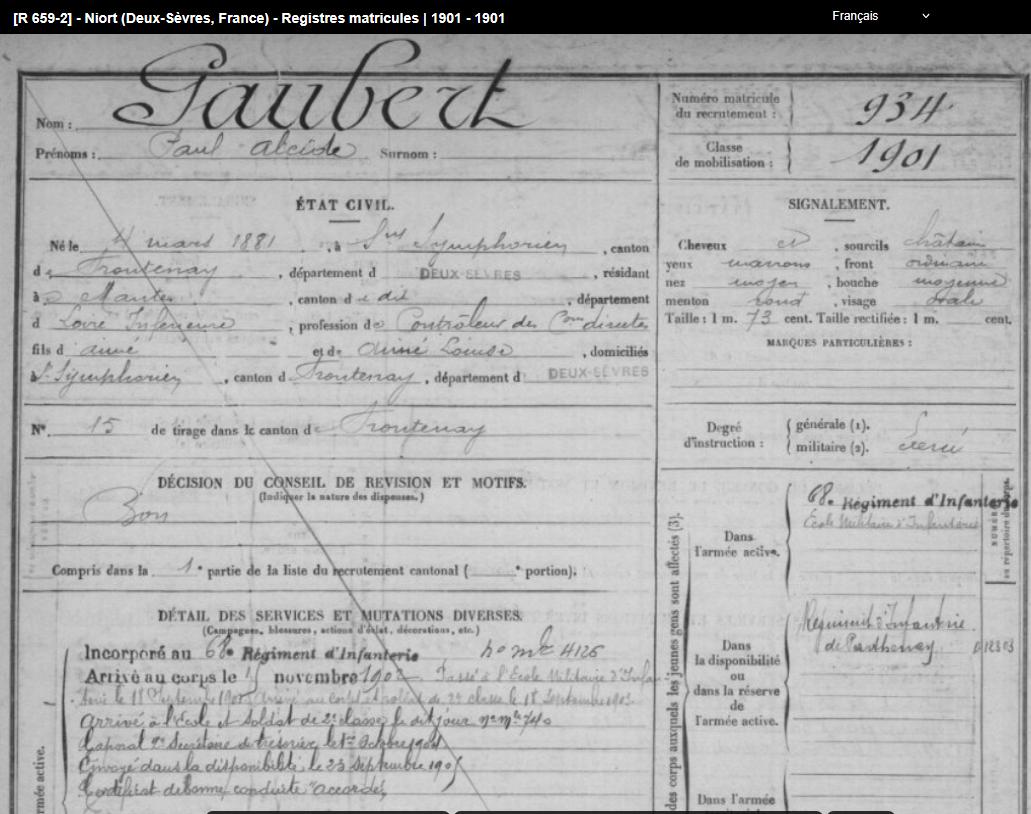 [R 659-2] - Niort (Deux-Sèvres, France) - Registres matricules | 1901 - 1901
Français
Nom : Gaubert
Prénoms : Paul Alcide Surnom :
Numéro matricule du recrutement : 934
Classe de mobilisation : 1901
ÉTAT CIVIL.
Né le 4 mars 1881, à St Symphorien, canton
de Frontenay, département d DEUX-SÈVRES, résidant
à Nantes, canton de dit, département
d Loire Inférieure, profession de Contrôleur des Cons directes
fils d aimé et de Aimé Louise, domiciliés
à St Symphorien, canton d Frontenay, département d DEUX-SÈVRES
N° 15 de tirage dans le canton de Frontenay
SIGNALEMENT.
Cheveux et, sourcils châtain
yeux marrons, front ordinaire
nez moyen, bouche moyenne
menton rond, visage ovale
Taille : 1 m. 73 cent. Taille rectifiée : 1 m. cent.
MARQUES PARTICULIÈRES :
Degré d'instruction :
générale (1).
militaire (2). Exercé
DÉCISION DU CONSEIL DE REVISION ET MOTIFS.
(Indiquer la nature des dispenses.)
Bon
Compris dans la 1e partie de la liste du recrutement cantonal ( e portion).
DÉTAIL DES SERVICES ET MUTATIONS DIVERSES.
(Campagnes, blessures, actions d'éclat, décorations, etc.)
Incorporé au 68e Régiment d'Infanterie no mle 4126
Arrivé au corps le novembre 1902 Passé à l'Ecole Militaire d'Infan
terie le 18 Septembre arrivé au corps et soldat de 2e classe le 18 Septembre 1903
Arrivé à l'Ecole et Soldat de 2e classe le dit jour no mle 740
Caporal 2e Secrétaire du trésorier, le 1er Octobre 1904
Envoyé dans la disponibilité, le 23 Septembre 1905
Certificat de bonne conduite "accordé"
armée active.
des corps auxquels les jeunes gens sont affectés (3).
NUMÉRO
au répertoire du corps.
Dans l'armée active.
68e Régiment d'Infanterie
École Militaire d'Infanterie
Dans la disponibilité ou dans la réserve de l'armée active.
Régiment d'Infanterie
de Parthenay
Dans l'armée